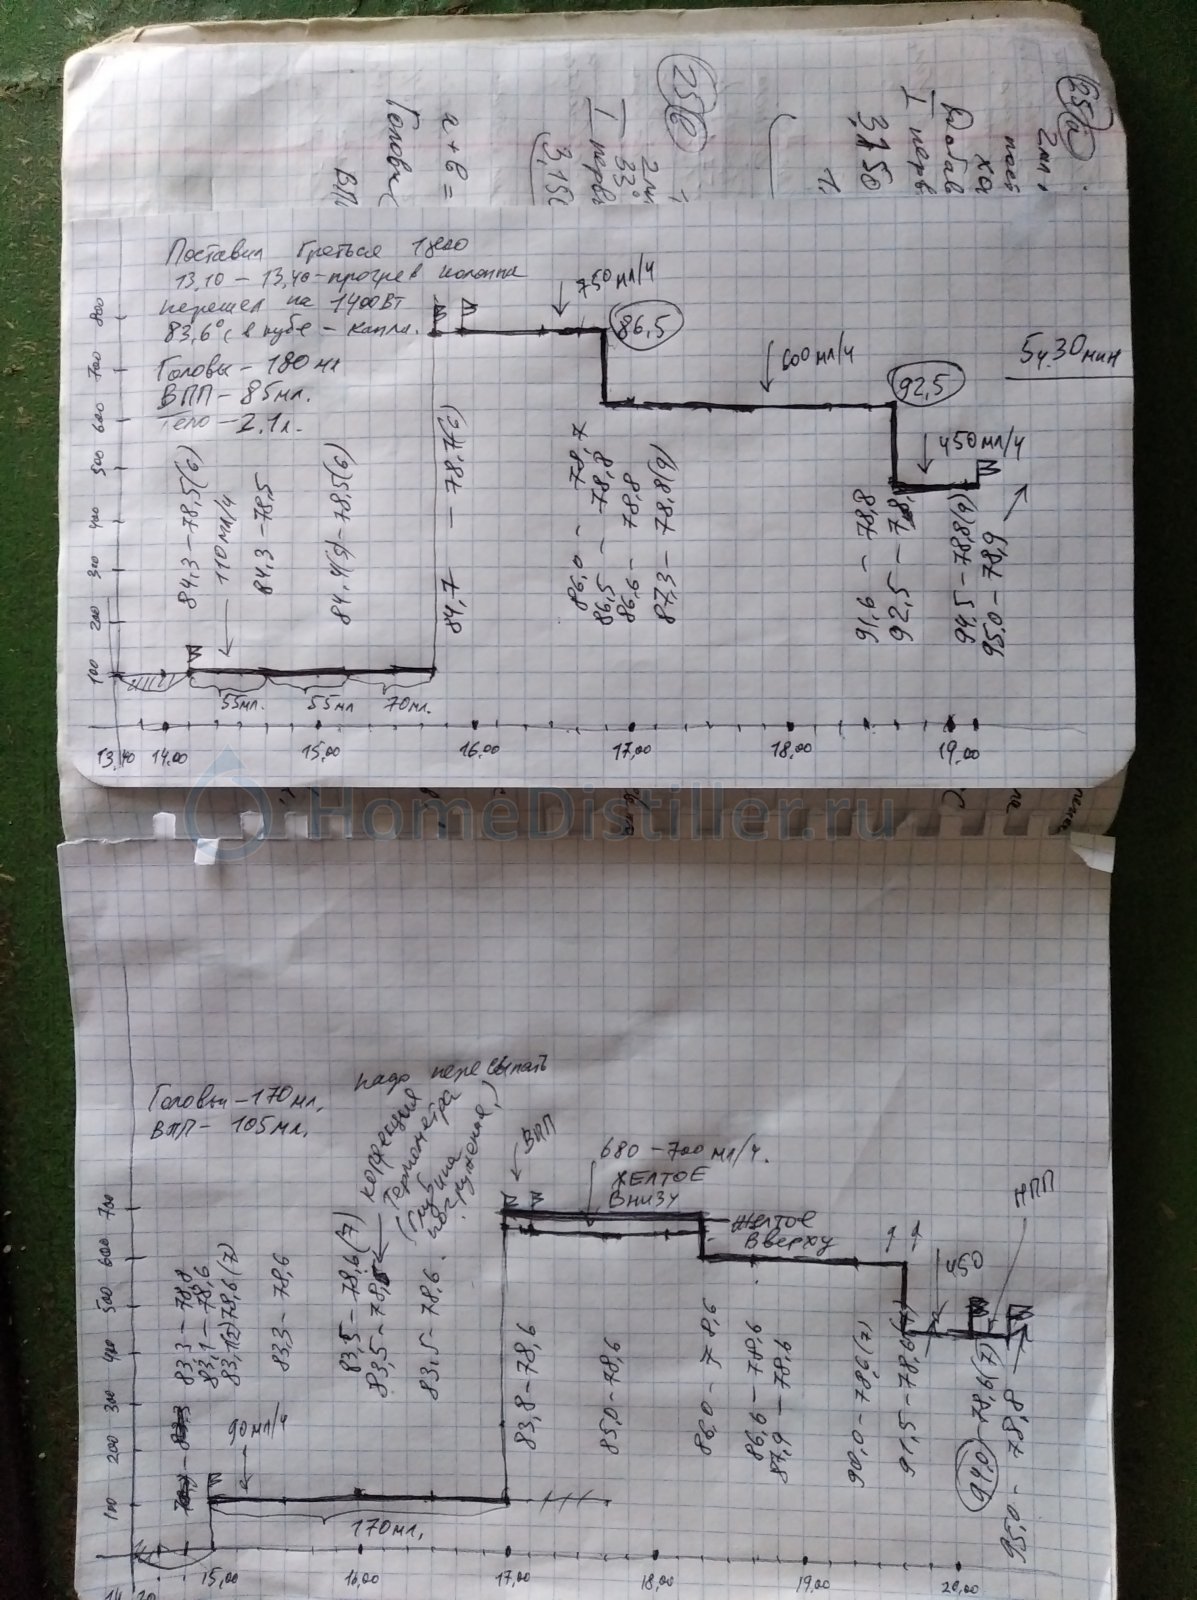 25(а)
2мл.
Добав
I перв
3,150
25(б)
2мл
33°
I перв
3,15
а+б =
Головы
ВПП
Поставил греться 1800
13,10 – 13,40 – прогрев колонна
перешел на 1400Вт
83,6°С в кубе – капли.
Головы – 180 мл
ВПП – 85мл.
Тело – 2.1л.
750мл/ч
86,5
600мл/ч
92,5
5ч.30мин
450мл/ч
800
700
600
500
400
300
200
100
84,3 – 78,5(6)
110мл/ч
84,3 – 78,5
84,4(5) – 78,5(6)
84,7 – 78,7(6)
86,0 – 78,7
86,5 – 78,8
86,6 – 78,8
87,3 – 78,8(9)
91,6 – 78,8
92,5 – 78,
94,5 – 78,8(9)
95,0 – 78,9
55мл.
55мл
70мл.
13,40
14,00
15,00
16,00
17,00
18,00
19,00
HomeDistiller.ru
надо пересыпать
Головы – 170мл,
ВПП – 105мл.
коррекция
термометра
(глубина
погружения,)
ВПП
680 – 700 мл/ч.
ЖЕЛТОЕ
ВНИЗУ
Желтое
Вверху
450
НПП
700
600
500
400
300
200
100
83,3 – 78,8
83,1 – 78,6
83,1(2) 78,6(7)
90мл/ч
83,3 – 78,6
83,5 – 78,6(7)
83,5 – 78,5
83,5 – 78,6.
83,8 – 78,6
85,0 – 78,6
86,0 – 78,6
86,6 – 78,6
87,9 – 78,6
90,0 – 78,6(7)
91,5 – 78,6(7)
94,0 – 78,6(7)
95,0 – 78,8
170мл,
15,00
16,00
17,00
18,00
19,00
20,00